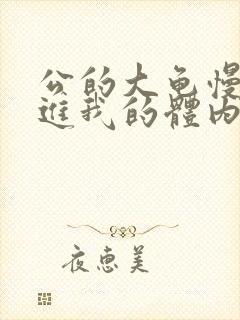 公的大龟慢
進我的體内
夜惠美